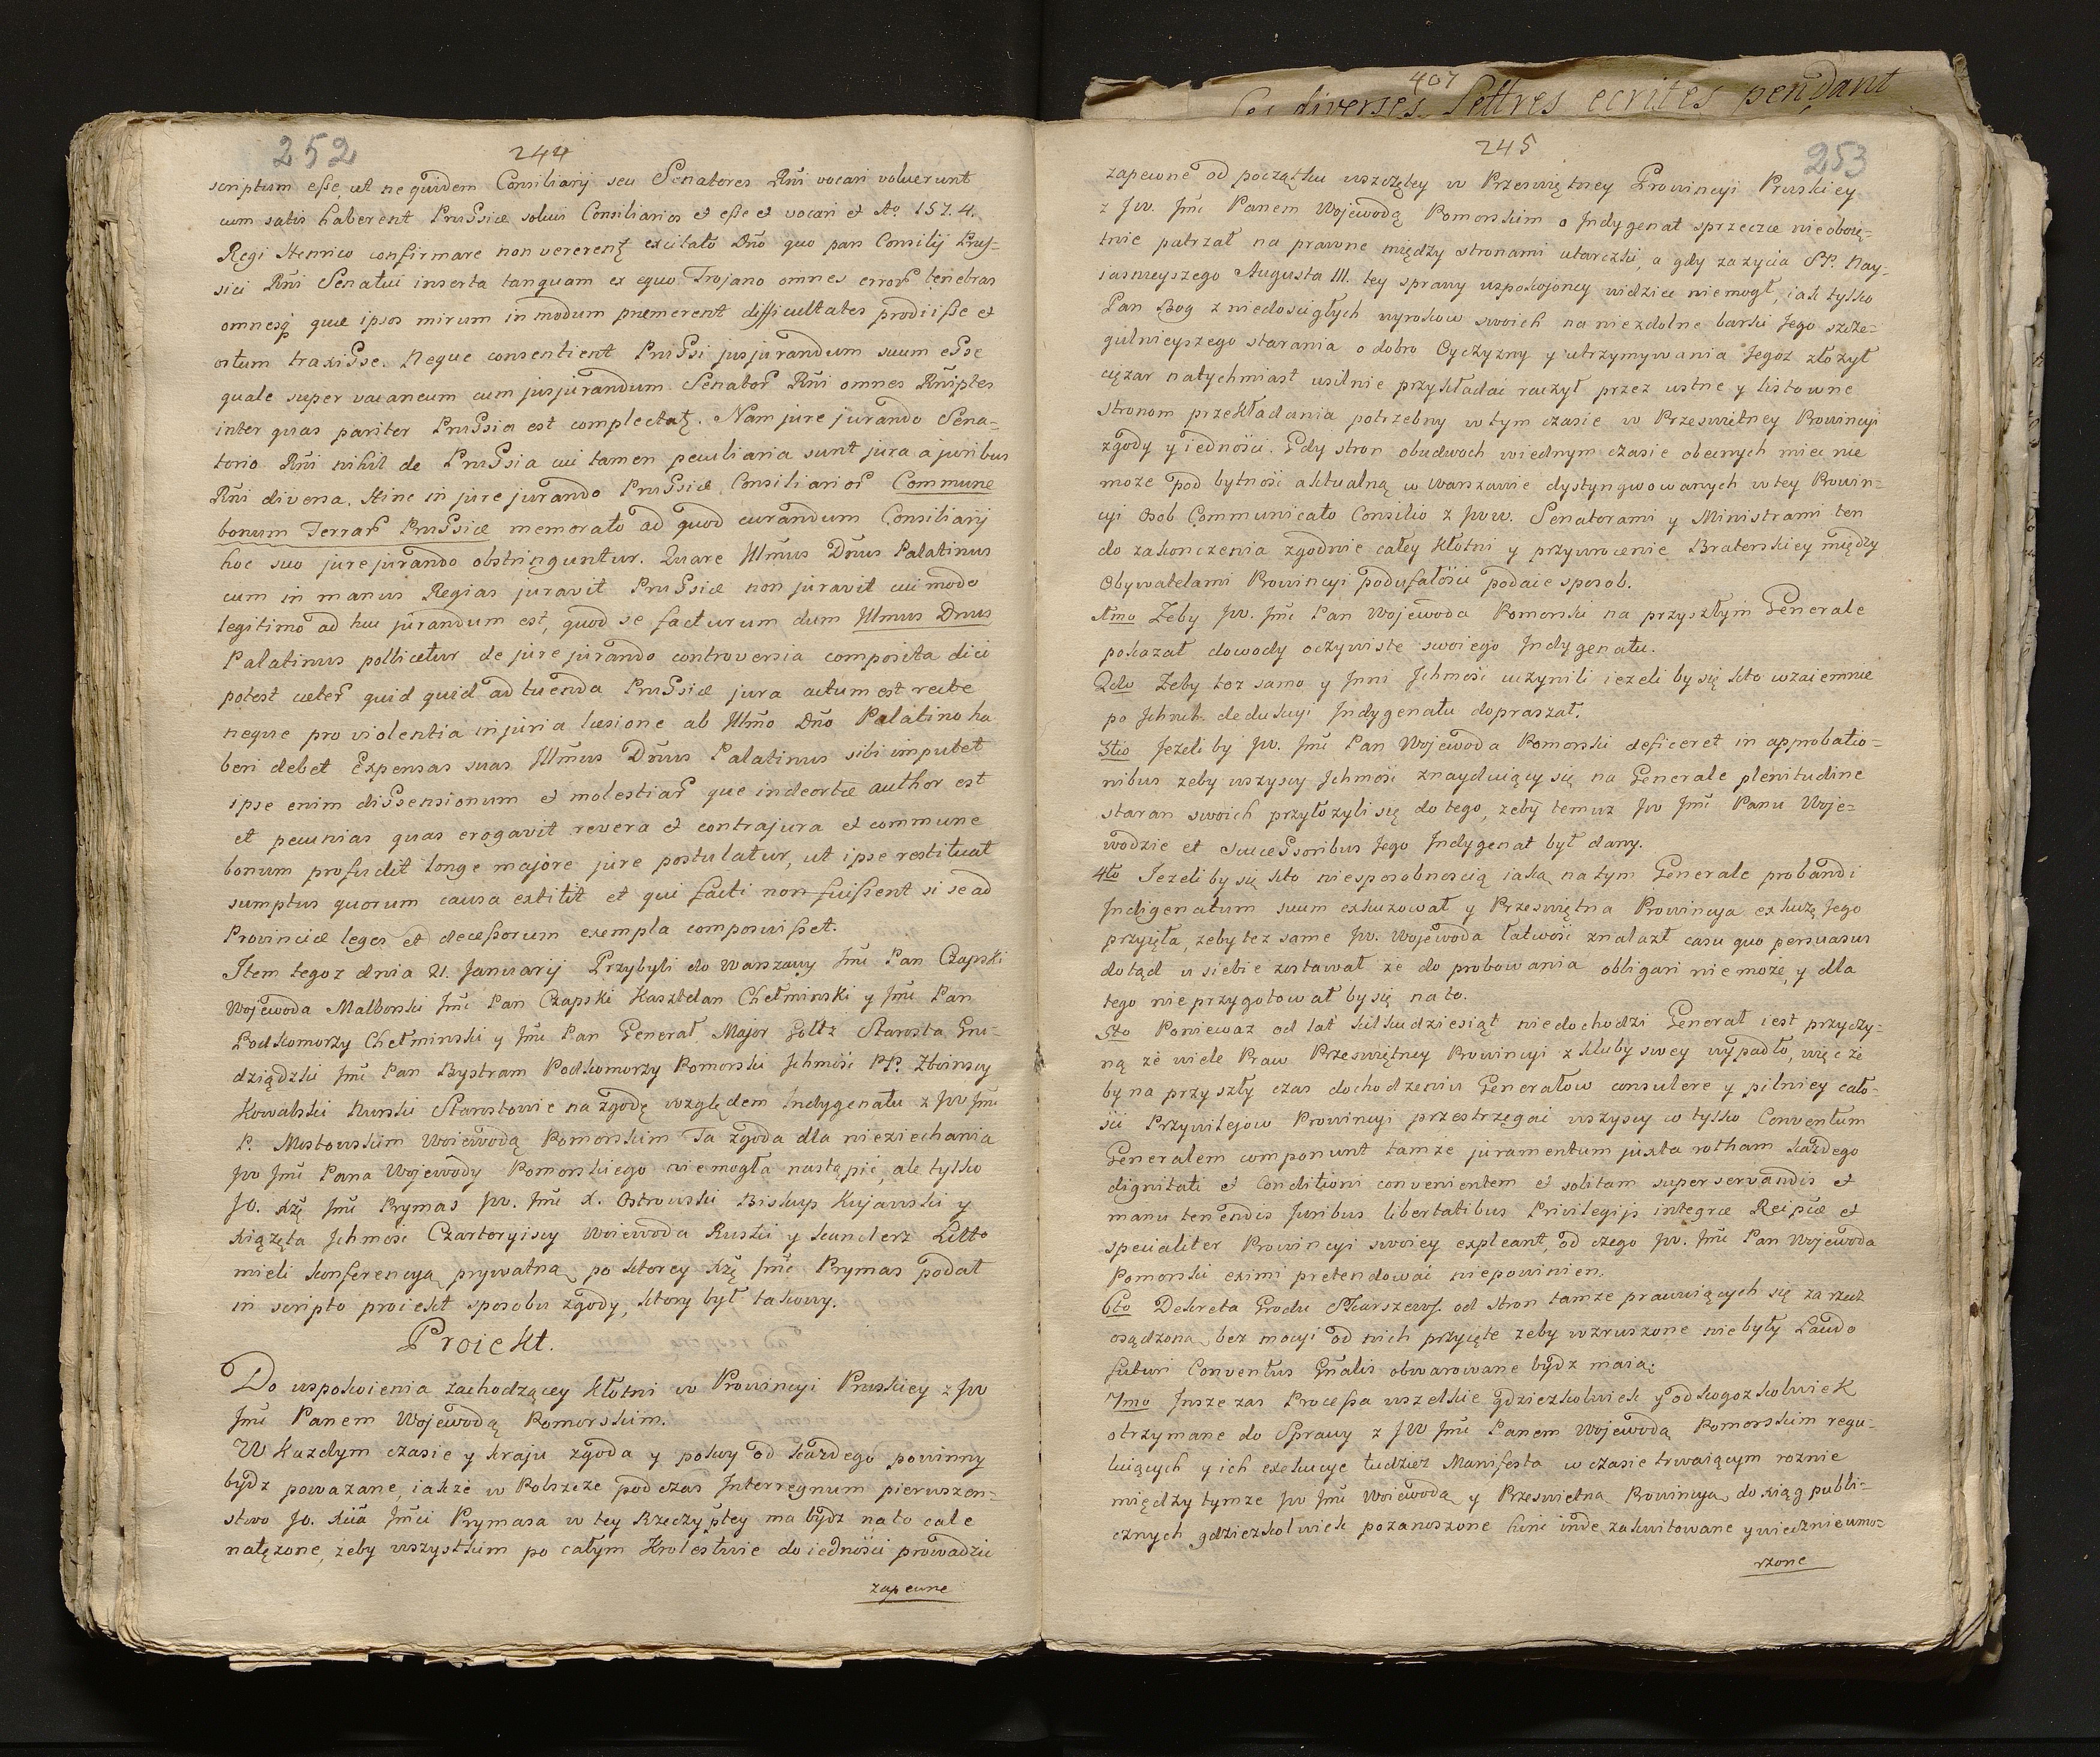 252
244
scriptum esse, ut ne quidem Consiliarij seu Senatores Rñi vocari voluerunt
cum satis haberent Prussiæ solum Consiliarios et esse et vocari et Aº. 1574.
Regi Henrico confirmare non vererent excitato Dño quo pan Consilij Prus=
sici Rñi Senatui inserta tanquam ex equo Trojano omnes error tenebras
omnesq quæ ipsos mirum in modum premerent difficultates prodiisse et
ortum traxisse. Neque consentient Prussi jusjurandum suum esse
quale super vacaneum cum jusjurandum Senator Rñi omnes Rñiptes
inter quas pariter Prussia est complectat. Nam jure jurando Sena=
torio Rñi nihil de Prussia cui tamen peculiaria sunt jura a juribus
Rñi diversa. Hinc in jure jurando Prussiæ Consiliarior Commune
bonum Terrar Prussiæ memorato ad quod curandum Consiliarij
hoc suo jurejurando obstringuntur. Quare Illmus Dñus Palatinus
cum in manus Regias juravit Prussiæ non juravit cui modo
legitimo ad huc jurandum est, quod se facturum dum Illmus Dnus
Palatinus pollicetur de jure jurando controversia composita dici
potest cæter quid quid ad tuenda Prussiæ jura actum est recte
neque pro violentia injuria læsione ab Illmo Dño Palatino ha
beri debet Expensas suas Illmus Dñus Palatinus sibi imputet
ipse enim dissensionum et molestiar que inde ortæ author est
et pecunias quas erogavit revera et contra jura et commune
bonum profudit longe majore jure postulatur, ut ipse restituat
sumptus quorum causa extitit et qui facti non fuissent si se ad
Provinciæ leges et decessorum exempla composuisset.
Item tegoz dnia 21. Januarij Przybyli do Warszawy Jmć Pan Czapski
Wojewoda Malborski Jmć Pan Czapski Kasztelan Chełminski y Jmć Pan
Podkomorzy Chełminski y Jmć Pan Generał Major Goltz Starosta Gru-
dziądzki Jmć Pan Bystram Podkomorzy Pomorski Jchmość PP. Zboinscy
Kowalski Rurski Starostowie na zgodę względem Indygenatu z JW Jmć
P. Mostowskim Woiewodą Pomorskim Ta zgoda dla nieziechania
JW Jmć Pana Wojewody Pomorskiego niemogła nastąpić, ale tylko
JO. Xżę Jmć Prymas JW. Jmć X. Ostrowski Biskup Kujawski y
Xiążęta Jchmość Czartoryiscy Woiewoda Ruski y kanclerz Litto
mieli konferencyą prywatną po ktorey Xżę Jmć Prymas podał
in scripto proiekt sposobu zgody, ktory był takowy.
Proiekt.
Do uspokoienia zachodzącey kłotni w Prowincyi Pruskiey z JW
Jmć Panem Wojewodą Pomorskim.
W Kazdym czasie y kraju zgoda y pokoy od kazdego powinny
bydz powazane, iakże w Polszcze pod czas Interregnum pierwszen=
stwo JO. Xcia Jmci Prymasa w tey Rzeczyptey ma bydz na to cale
natęzone, zeby wszystkim po całym Krolestwie do iednosci prowadzic
zapewne
407
les diverses Lettres ecrites pendant
245
253
zapewne od początku wszczętey w Przeswiętney Prowincyi Pruskiey
z JW. Jmć Panem Wojewodą Pomorskim o Indygenat sprzecze nieoboię=
tnie patrzał na prawne między stronami utarczki, a gdy za zycia SP. Nay-
iasnieyszego Augusta III. tey sprawy uspokojoney widziec niemogł, iak tylko
Pan Bog z niedoscigłych wyrokow swoich na niezdolne barki Jego szcze=
gulnieyszego starania o dobro Oyczyzny y utrzymywania Jegoz złozył
cięzar natychmiast usilnie przykładac raczył przez ustne y listowne
stronom przekładania potrzebny w tym czasie w Przeswietney Prowincyi
zgody y iednosci. Gdy stron obudwoch wiednym czasie obecnych miec nie
moze pod bytnosć aktualną w Warszawie dystyngwowanych w tey Prowin=
cyi Osob Communicato Consilio z JWW. Senatorami y Ministrami ten
do zakonczenia zgodnie całey kłotni y przywrocenie Braterskiey między
Obywatelami Prowincyi podufałosci podaie sposob.
1mo Zeby JW. Jmć Pan Wojewoda Pomorski na przyszłym Generale
pokazał dowody oczywiste swoiego Indygenatu.
2do Zeby toz samo y Inni Jchmość uczynili iezeli by się kto wzaiemnie
po Ichmć. dedukcyi Indygenatu dopraszał.
3tio Jezeli by JW. Jmć Pan Wojewoda Pomorski deficeret in approbatio=
nibus zeby wszyscy Jchmość znayduiący się na Generale plenitudine
staran swoich przyłozyli się do tego, zeby temuz JW Jmć Panu Woje=
wodzie et successoribus Jego Indygenat był dany.
4to Jezeli by się kto niesposobnoscią iaką na tym Generale probandi
Indigenatum suum exkuzował y Przeswiętna Prowincya exkuzę Jego
przyięła, zeby tez same JW. Wojewoda łatwość znalazł casu quo persuasus
dotąd u siebie zostawał ze do probowania obligari niemoże, y dla
tego nieprzygotował by się na to.
5to Poniewaz od lat kilkudziesiąt niedochodzi Generał iest przyczy=
ną że wiele Praw Przeswiętney Prowincyi z kluby swey wypadło, więc że
by na przyszły czas dochodzeniu Generałow consulere y pilniey cało-
sci Przywilejow Prowincyi przestrzegać wszyscy co tylko Conventum
Generalem componunt tamże juramentum juxta rotham każdego
dignitati et Conditioni convenientem et solitam super servandis et
manu tenendis Juribus libertatibus Privilegijs integræ Reipcæ et
specialiter Prowincyi swoiey expleant, od czego JW. Jmć Pan Wojewoda
Pomorski eximi pretendować niepowinien.
6to Dekreta Grodu Skarszews. od stron tamze prawuiących się za rzecz
osądzoną bez mocyi od nich przyięte zeby wzruszone nie były Laudo
futuri Conventus Gñalis obwarowane bydz maią.
7mo Insze zas Processa wszelkie gdziezkolwiek y od kogozkolwiek
otrzymane do Sprawy z JW Jmć Panem Wojewodą Pomorskim regu-
luiących y ich exekucye tudziez Manifesta w czasie trwaiącym roznie
między tymze JW Jmć Woiewodą y Przeswietną Prowincyą do xiąg publi=
cznych gdziezkolwiek pozanoszone hinc inde zakwitowane y wiecznie umo=
rzone